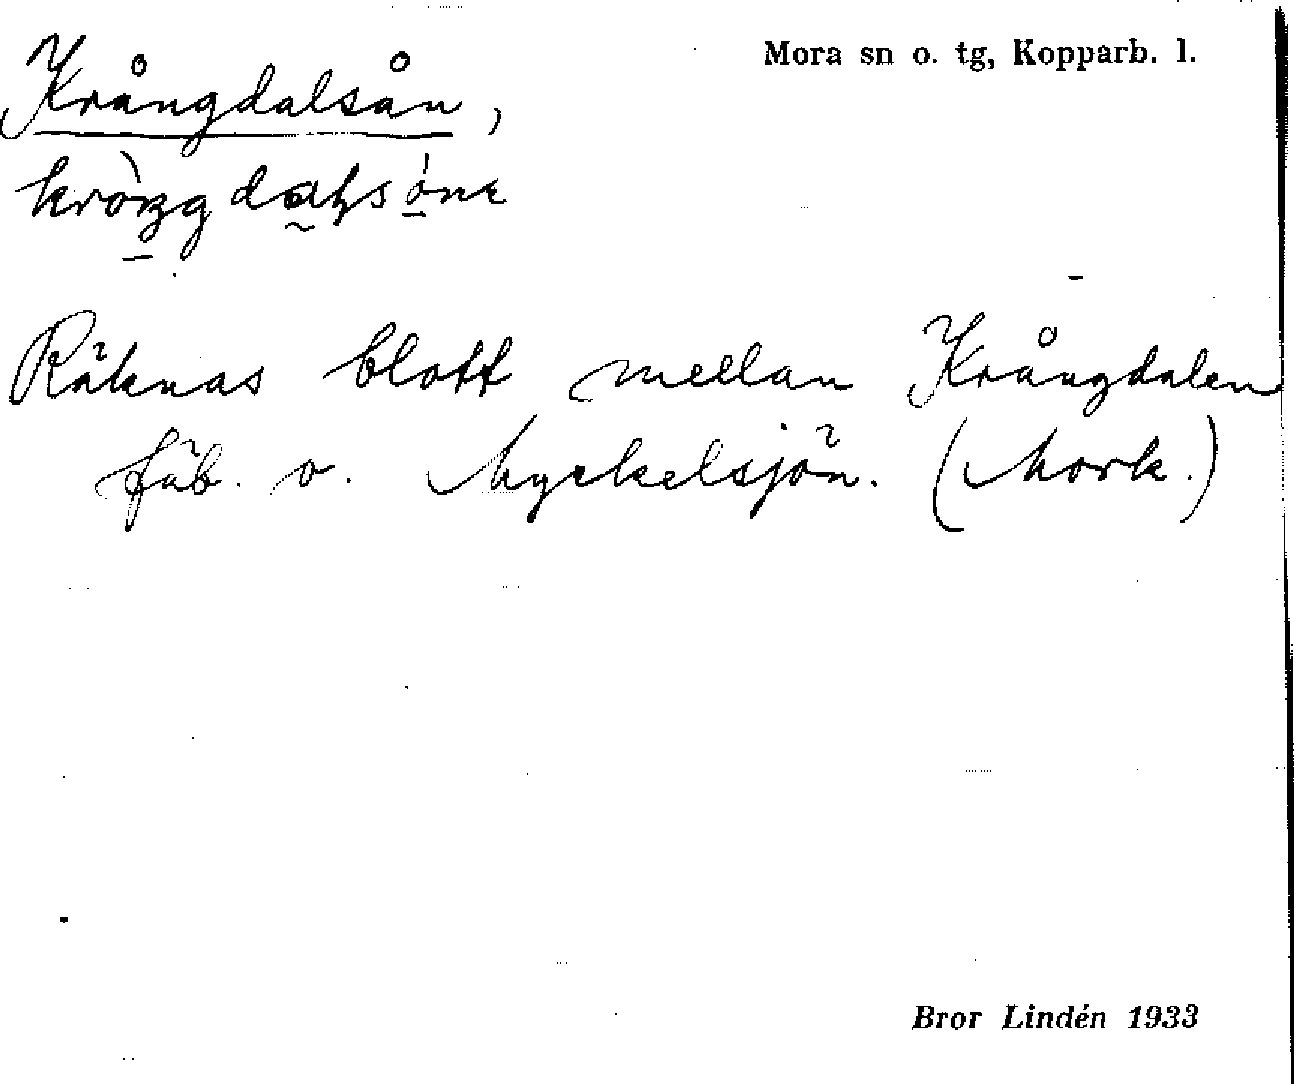 Mora sn o. tg, Kopparb. l.
Krångdalsån,
Räknas blott mellan Krångdalen
fäb. o. Myckelsjön. (Mork.)
Bror Lindén 1933